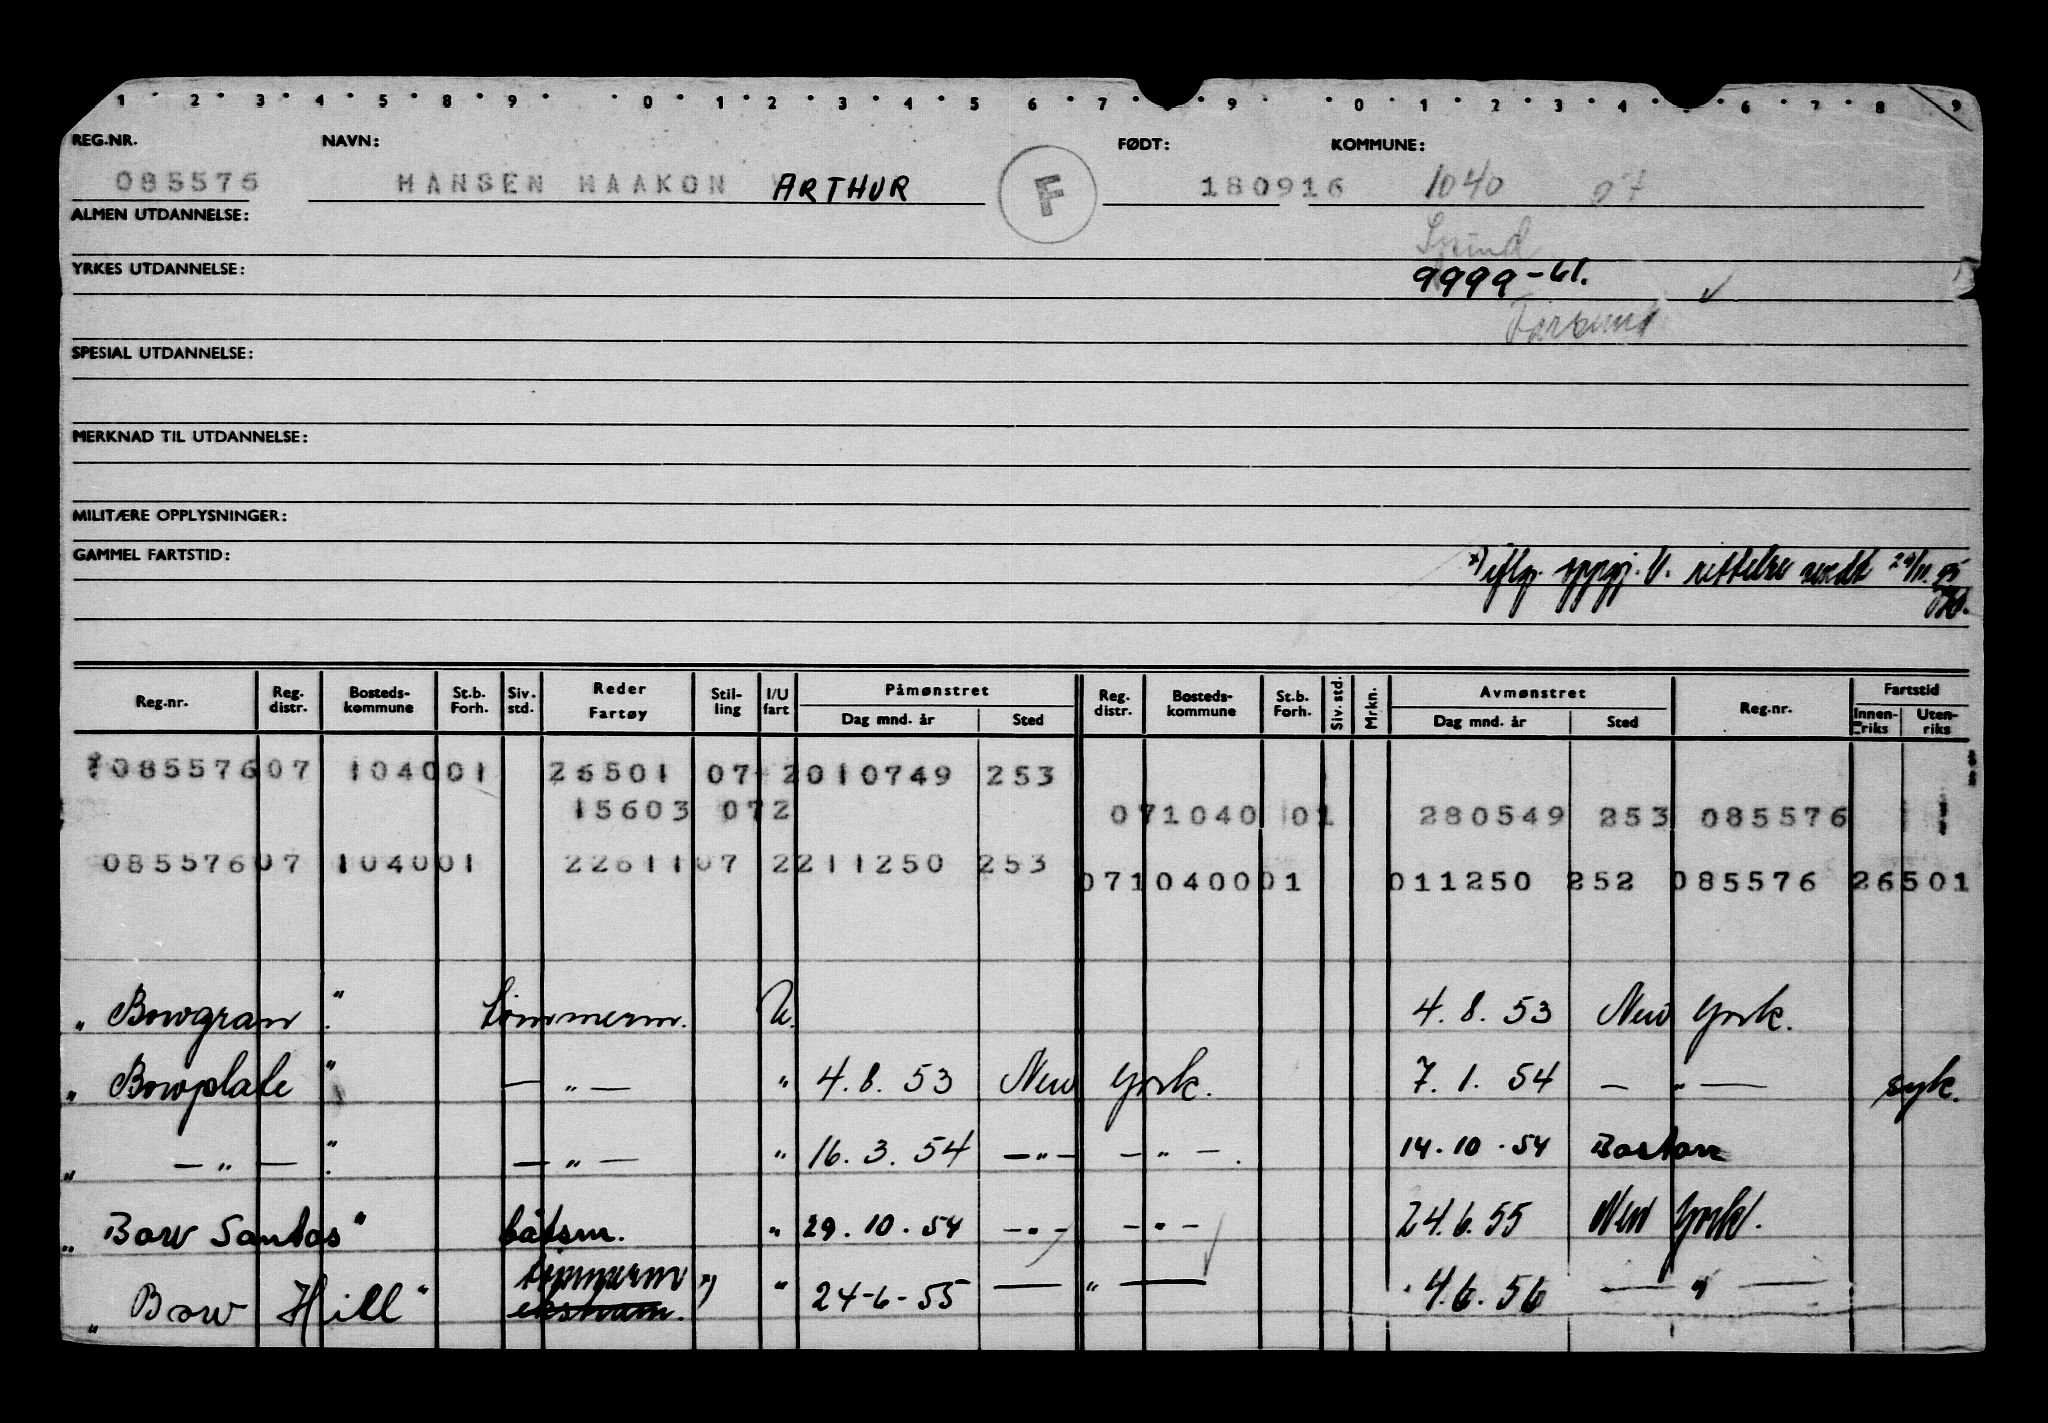 1 2 3 4 5 8 9 0 1 2 3 4 5 6 7 9 0 1 2 3 4 6 7 8 9
REG.NR. NAVN: FØDT: KOMMUNE:
085576 HANSEN HAAKON ARTHUR F 180916 1040 07
ALMEN UTDANNELSE: Spind
YRKES UTDANNELSE: 9999-61.
Farsund
SPESIAL UTDANNELSE:
MERKNAD TIL UTDANNELSE:
MILITÆRE OPPLYSNINGER:
GAMMEL FARTSTID: x) iflg. oppgj. V. rettelse sendt 29/11.55
Reg.nr. Reg. distr. Bosteds- kommune St.b. Forh. Siv. std. Reder Fartøy Stil- ling I/U fart Påmønstret Dag mnd. år Sted Reg. distr. Bosteds- kommune St.b. Forh. Siv. std. Mrkn. Avmønstret Dag mnd. år Sted Reg.nr. Fartstid Innen- riks Uten- riks
08557607 104001 26501 07 2010749 253
15603 072 071040 01 280549 253 085576
08557607 104001 2261107 2211250 253
071040001 011250 252 085576 26501
„ Bowgran " tømmerm. U. 4. 8. 53 New York.
„ Bowplate " — „ — " 4. 8. 53 New York. 7. 1. 54 — „ — syk.
„ — „ — " — „ — " 16. 3. 54 — „ — — „ — . 14. 10. 54 Boston
„ Bow Santos " båtsm. " 29. 10. 54 — „ — — „ — 24. 6. 55 New York.
„ Bow Hill " tømmerm x) " 24-6-55 — „ — 4. 6. 56 — „ —
eksmam.